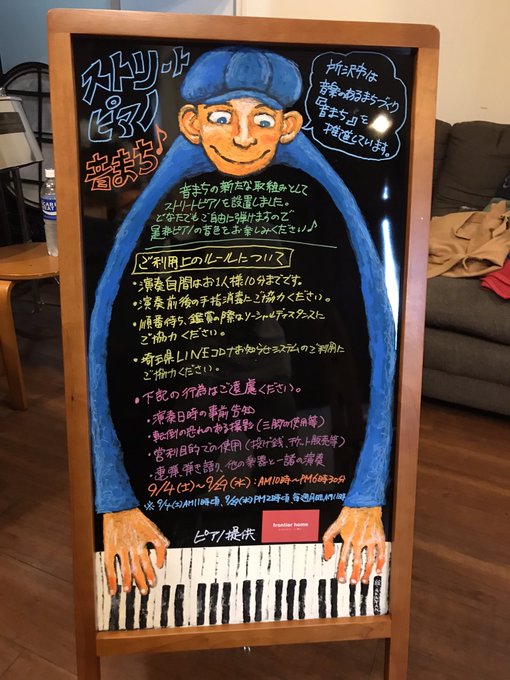 ストリート
ピアノ
音まち♪
所沢市は
音楽のあるまちづくり
『音まち』を
推進しています。
音まちの新たな取組みとして
ストリートピアノを設置しました。
どなたでもご自由に弾けますので
是非ピアノの音色をお楽しみください♪
ご利用上のルールについて
・演奏時間はお1人様10分までです。
・演奏前後の手指消毒にご協力ください。
・順番待ち、鑑賞の際はソーシャルディスタンスに
ご協力ください。
・埼玉県LINEコロナお知らせシステムのご利用に
ご協力ください。
・下記の行為はご遠慮ください。
・演奏日時の事前告知
・転倒の恐れのある撮影(三脚の使用等)
・営利目的での使用(投げ銭、チケット販売等)
・連弾、弾き語り、他の楽器と一緒の演奏
9/4(土)~9/29(水):AM10時~PM6時30分
※9/4(土)AM11時頃、9/29(水)PM2時頃
ピアノ提供
frontier home